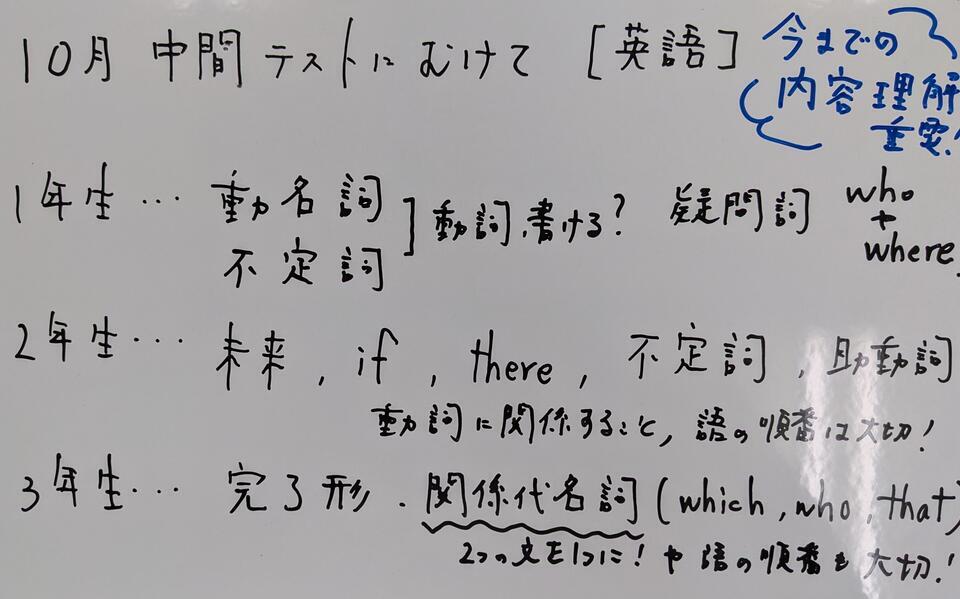 10月 中間テストにむけて [英語]
今までの
内容理解
重要!
1年生… 動名詞
不定詞
] 動詞、書ける? 疑問詞 who
や
where
2年生… 未来, if, there, 不定詞, 助動詞
動詞に関係すること, 語の順番は大切!
3年生… 完了形.関係代名詞(which, who, that)
2つの文を1つに! や 語の順番も大切!